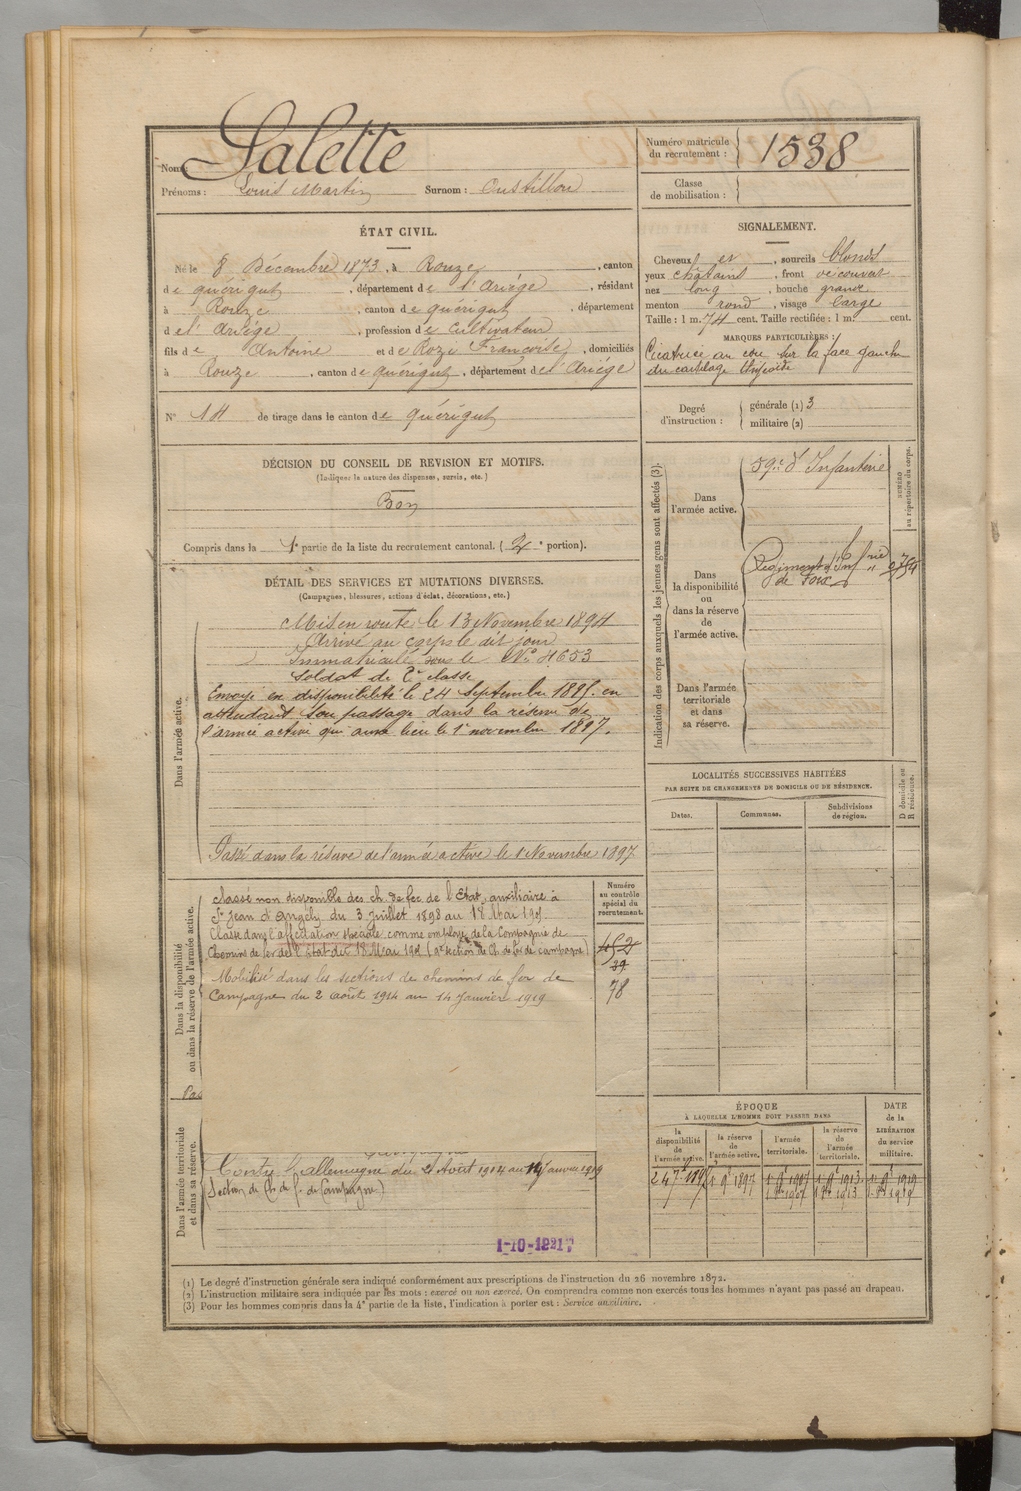 Nom : Salette
Prénoms : Louis Martin Surnom : Oustillou
Numéro matricule du recrutement : 1538
Classe de mobilisation :
ÉTAT CIVIL.
Né le 8 Décembre 1873, à Rouze, canton
de quérigut, département de l'Ariège, résidant
à Rouze, canton de quérigut, département
de l'Ariège, profession de Cultivateur
fils de Antoine et de Roze Françoise, domiciliés
à Rouze, canton de quérigut, département de l'Ariège
N° 14 de tirage dans le canton de quérigut
SIGNALEMENT.
Cheveux et, sourcils blonds
yeux châtains, front découvert
nez long, bouche grande
menton rond, visage large
Taille : 1 m. 74 cent. Taille rectifiée : 1 m. cent.
MARQUES PARTICULIÈRES :
Cicatrice au cou sur la face gauche
du cartilage thyroïde
Degré d'instruction : générale (1) 3
militaire (2)
DÉCISION DU CONSEIL DE REVISION ET MOTIFS.
(Indiquer la nature des dispenses, sursis, etc.)
Bon
Compris dans la 1e partie de la liste du recrutement cantonal. (2e portion).
DÉTAIL DES SERVICES ET MUTATIONS DIVERSES.
(Campagnes, blessures, actions d'éclat, décorations, etc.)
Dans l'armée active.
Mis en route le 13 Novembre 1894
Arrivé au corps le dit jour
Immatriculé sous le N° 4653
Soldat de 2e classe
Envoyé en disponibilité le 24 Septembre 1895 en
attendant son passage dans la réserve de
l'armée active qui aura lieu le 1er novembre 1897.
Passé dans la réserve de l'armée active le 1 Novembre 1897
Indication des corps auxquels les jeunes gens sont affectés (3).
NUMÉRO au répertoire du corps.
Dans l'armée active.
59e d'Infanterie
Dans la disponibilité ou dans la réserve de l'armée active.
Régiment d'Infrie
de Foix
Dans l'armée territoriale et dans sa réserve.
LOCALITÉS SUCCESSIVES HABITÉES
PAR SUITE DE CHANGEMENTS DE DOMICILE OU DE RÉSIDENCE.
Dates. Communes. Subdivisions de région. D domicile ou R résidence.
Dans la disponibilité ou dans la réserve de l'armée active.
Numéro au contrôle spécial du recrutement.
Classé non disponible des ch. de fer de l'Etat, auxiliaire à
St Jean d'Angely du 3 juillet 1898 au 18 Mai 190
Classé dans l'affectation spéciale comme employé de la Compagnie de
Chemins de fer de l'Etat du 18 Mai 190 (section de Ch. de fer de campagne)
Mobilisé dans les sections de chemins de fer de
Campagne du 2 août 1914 au 14 Janvier 1919
452
39
78
Pas
Dans l'armée territoriale et dans sa réserve.
Contre l'allemagne du 2 Août 1914 au 14 Janvier 1919
(Section de Ch. de f. de Campagne)
ÉPOQUE
À LAQUELLE L'HOMME DOIT PASSER DANS
la disponibilité de l'armée active. la réserve de l'armée active. l'armée territoriale. la réserve de l'armée territoriale.
DATE de la LIBÉRATION du service militaire.
(1) Le degré d'instruction générale sera indiqué conformément aux prescriptions de l'instruction du 26 novembre 1872.
(2) L'instruction militaire sera indiquée par les mots : exercé ou non exercé. On comprendra comme non exercés tous les hommes n'ayant pas passé au drapeau.
(3) Pour les hommes compris dans la 4e partie de la liste, l'indication à porter est : Service auxiliaire.